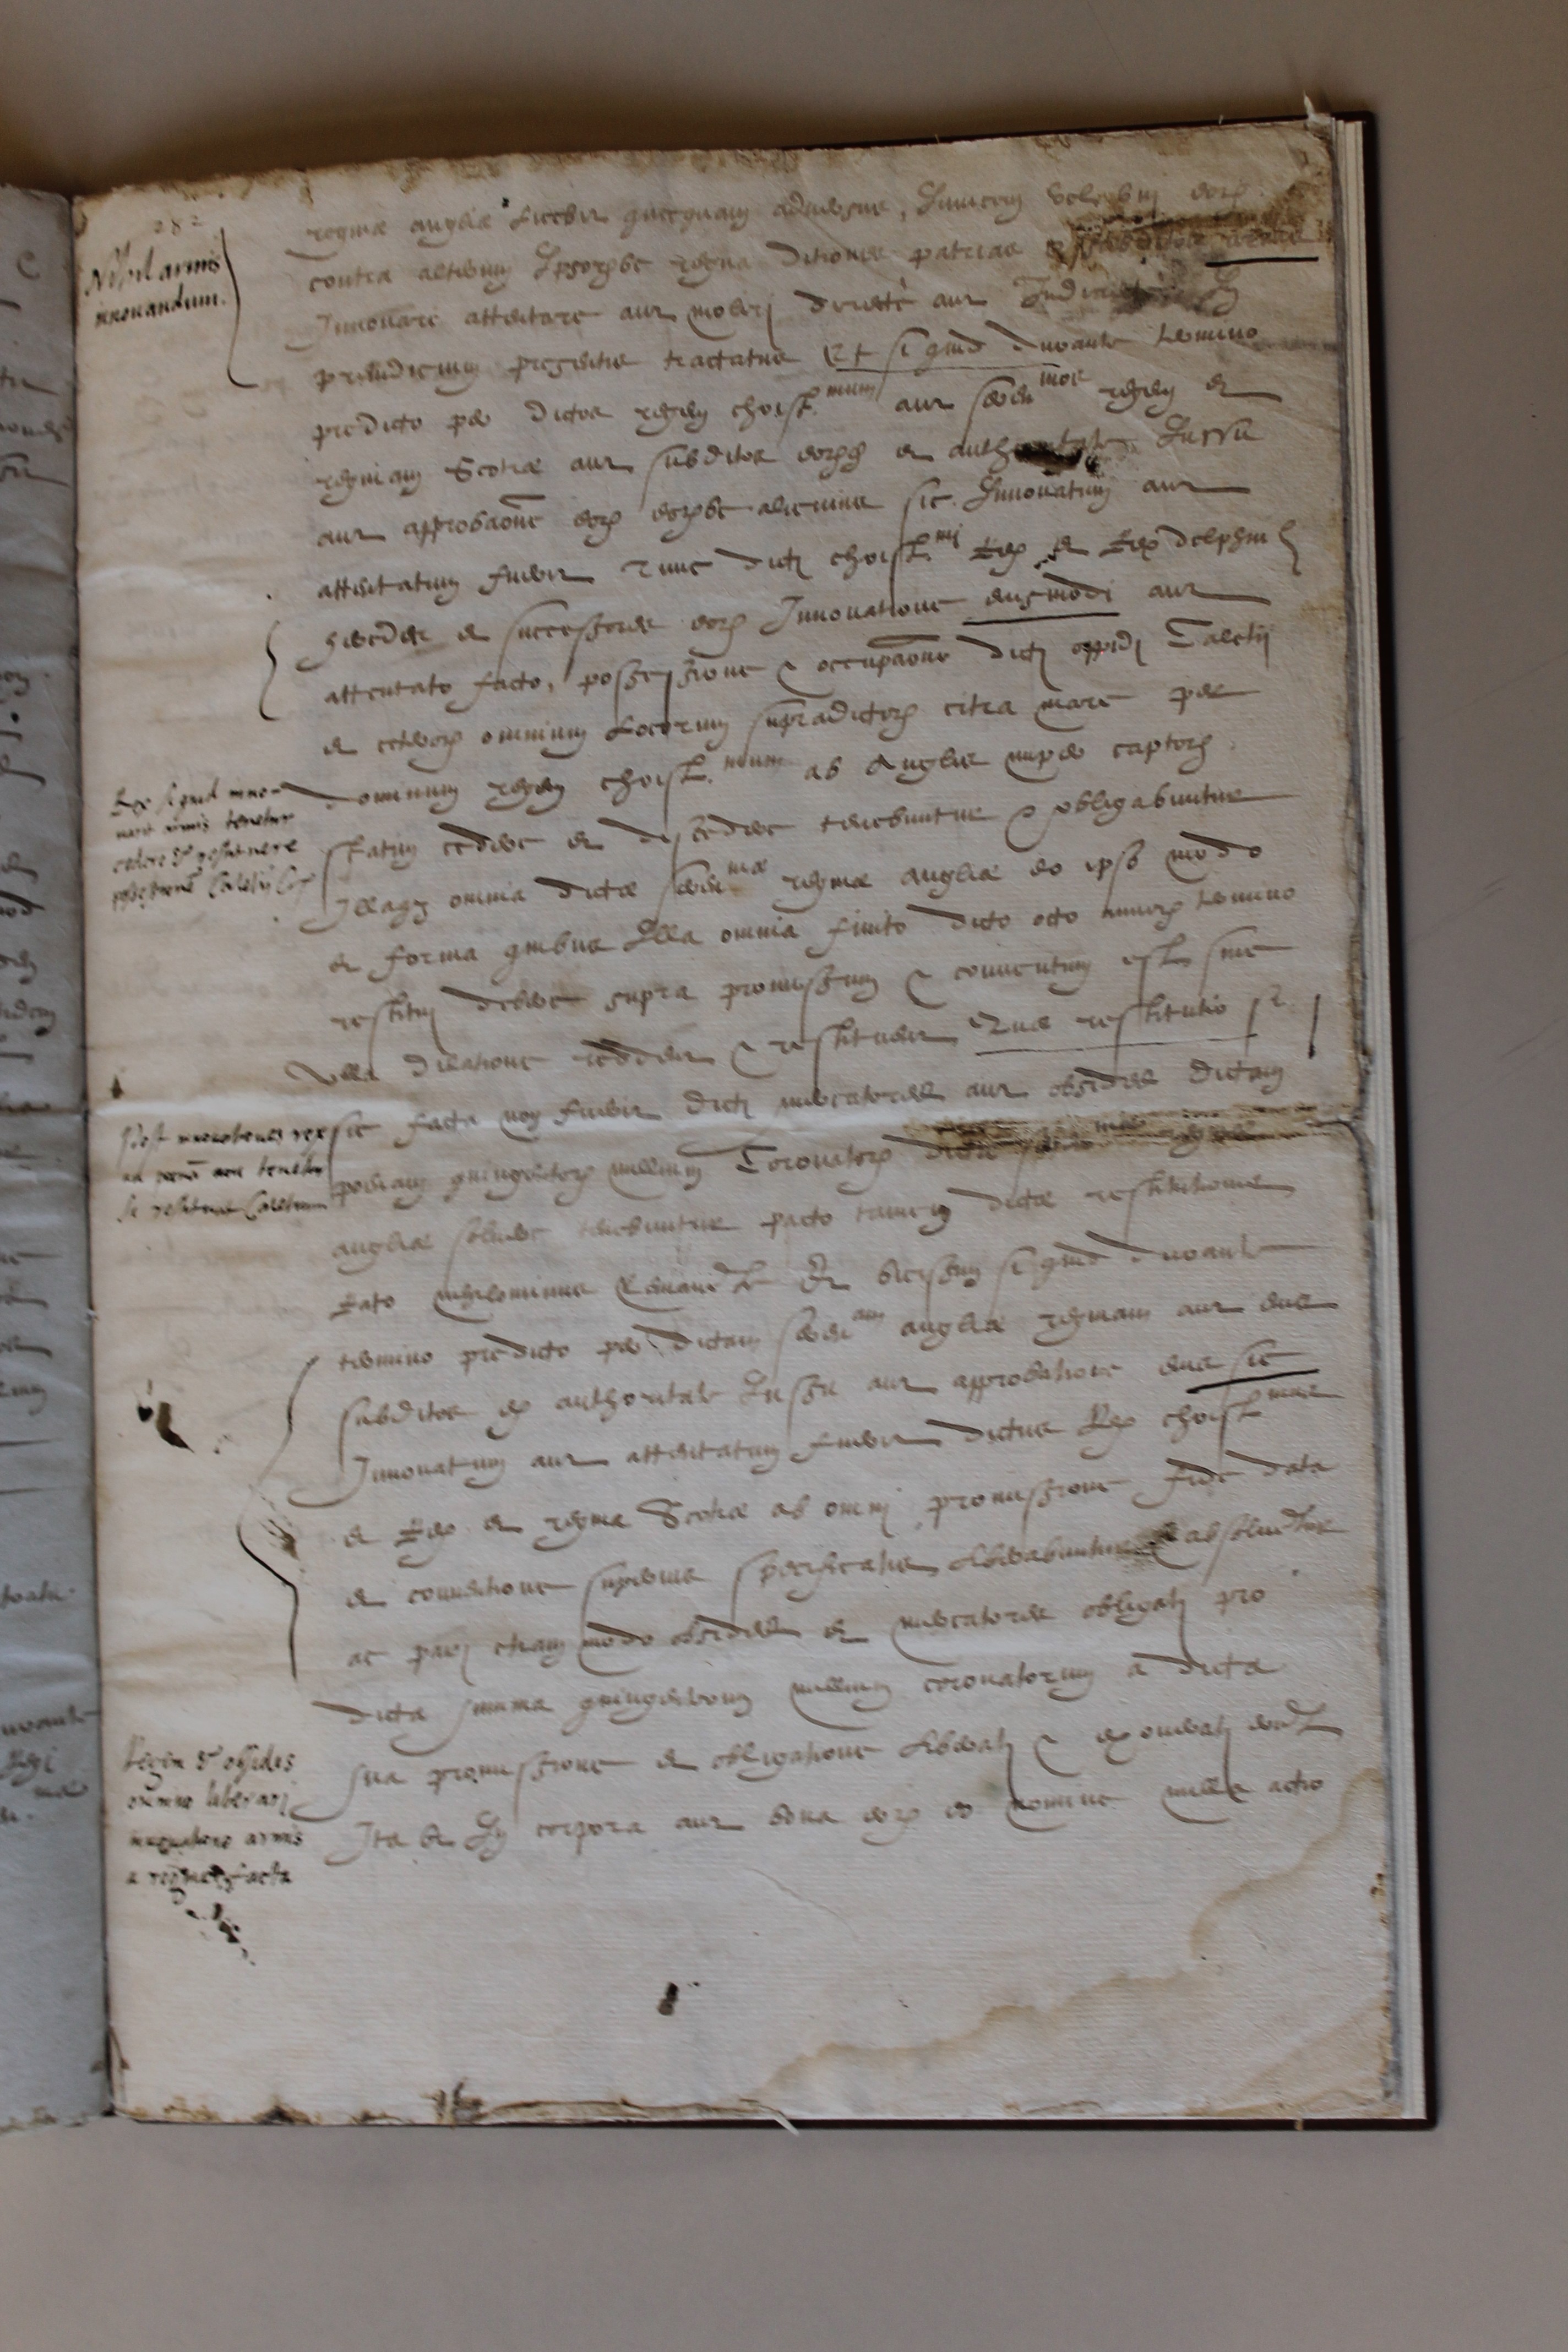 282
Nihil armis
innouandum.
reginæ angliæ liceber quicquam aduersus, Inuicem vel
contra alterum Ipsorumve regna ditiones patrias & subditos armis
Innouare attentare aut moliri directè aut Indirectè In
preiudicium presentis tractatus Et si quid durante termino
predicto per dictos regem christ.mum aut seren.mos regem et
reginam Scotiæ aut subditos eorum ex authoritate Iussu
aut approbaõne eorum eorumve alicuius sic Innouatum aut
attentatum fuerit tunc dicti christ.mi Rex et Rex delphin
heredes et successores eorum Innouatione eiusmodi aut
attentato facto, possessione & occupaõne dicti oppidi Caletij
et ceterorum omnium locorum supradictorum citra mare per
dominum regem christ.mum ab Anglis nuper captorum
statim cedere et discedere tenebuntur & obligabuntur
Illaque omnia dictæ seren.mæ reginæ angliæ eo ipso modo
et forma quibus Illa omnia finito dicto octo annorum termino
restitui debere supra promissum & conuentum est sine
vlla dilatione reddent & restituent Quæ restitutio si
sic facta non fuerit dicti mercatores aut obsides dictam
pœnam quingentorum millium Coronatorum
angliæ soluere tenebuntur pacto tamen dictæ restitutionis
rato nihilominus remanente Et vicissim si quid durante
termino predicto per dictam seren.am angliæ reginam aut eius
subditos ex authoritate Iussu aut approbatione eius sic
Innouatum aut attentatum fuerit dictus Rex christ.mus
et Rex et regina Scotiæ ab omni promissione fide data
et conuentione superius specificatis liberabuntur & absoluentur
ac pari etiam modo obsides et mercatores obligati pro
dicta summa quingentorum millium coronatorum a dicta
sua promissione et obligatione liberati & exonerati erunt
Ita vt In corpora aut bona eorum eo nomine nulla actio
Rex si quid inno-
uarit armis tenetur
cedere & restituere
possessionẽ Caletij
Post innouationem rex
ad pœnã non tenetur
si restituat Caletum
Regem & obsides
omnino liberari
innouatione armis
a regina facta